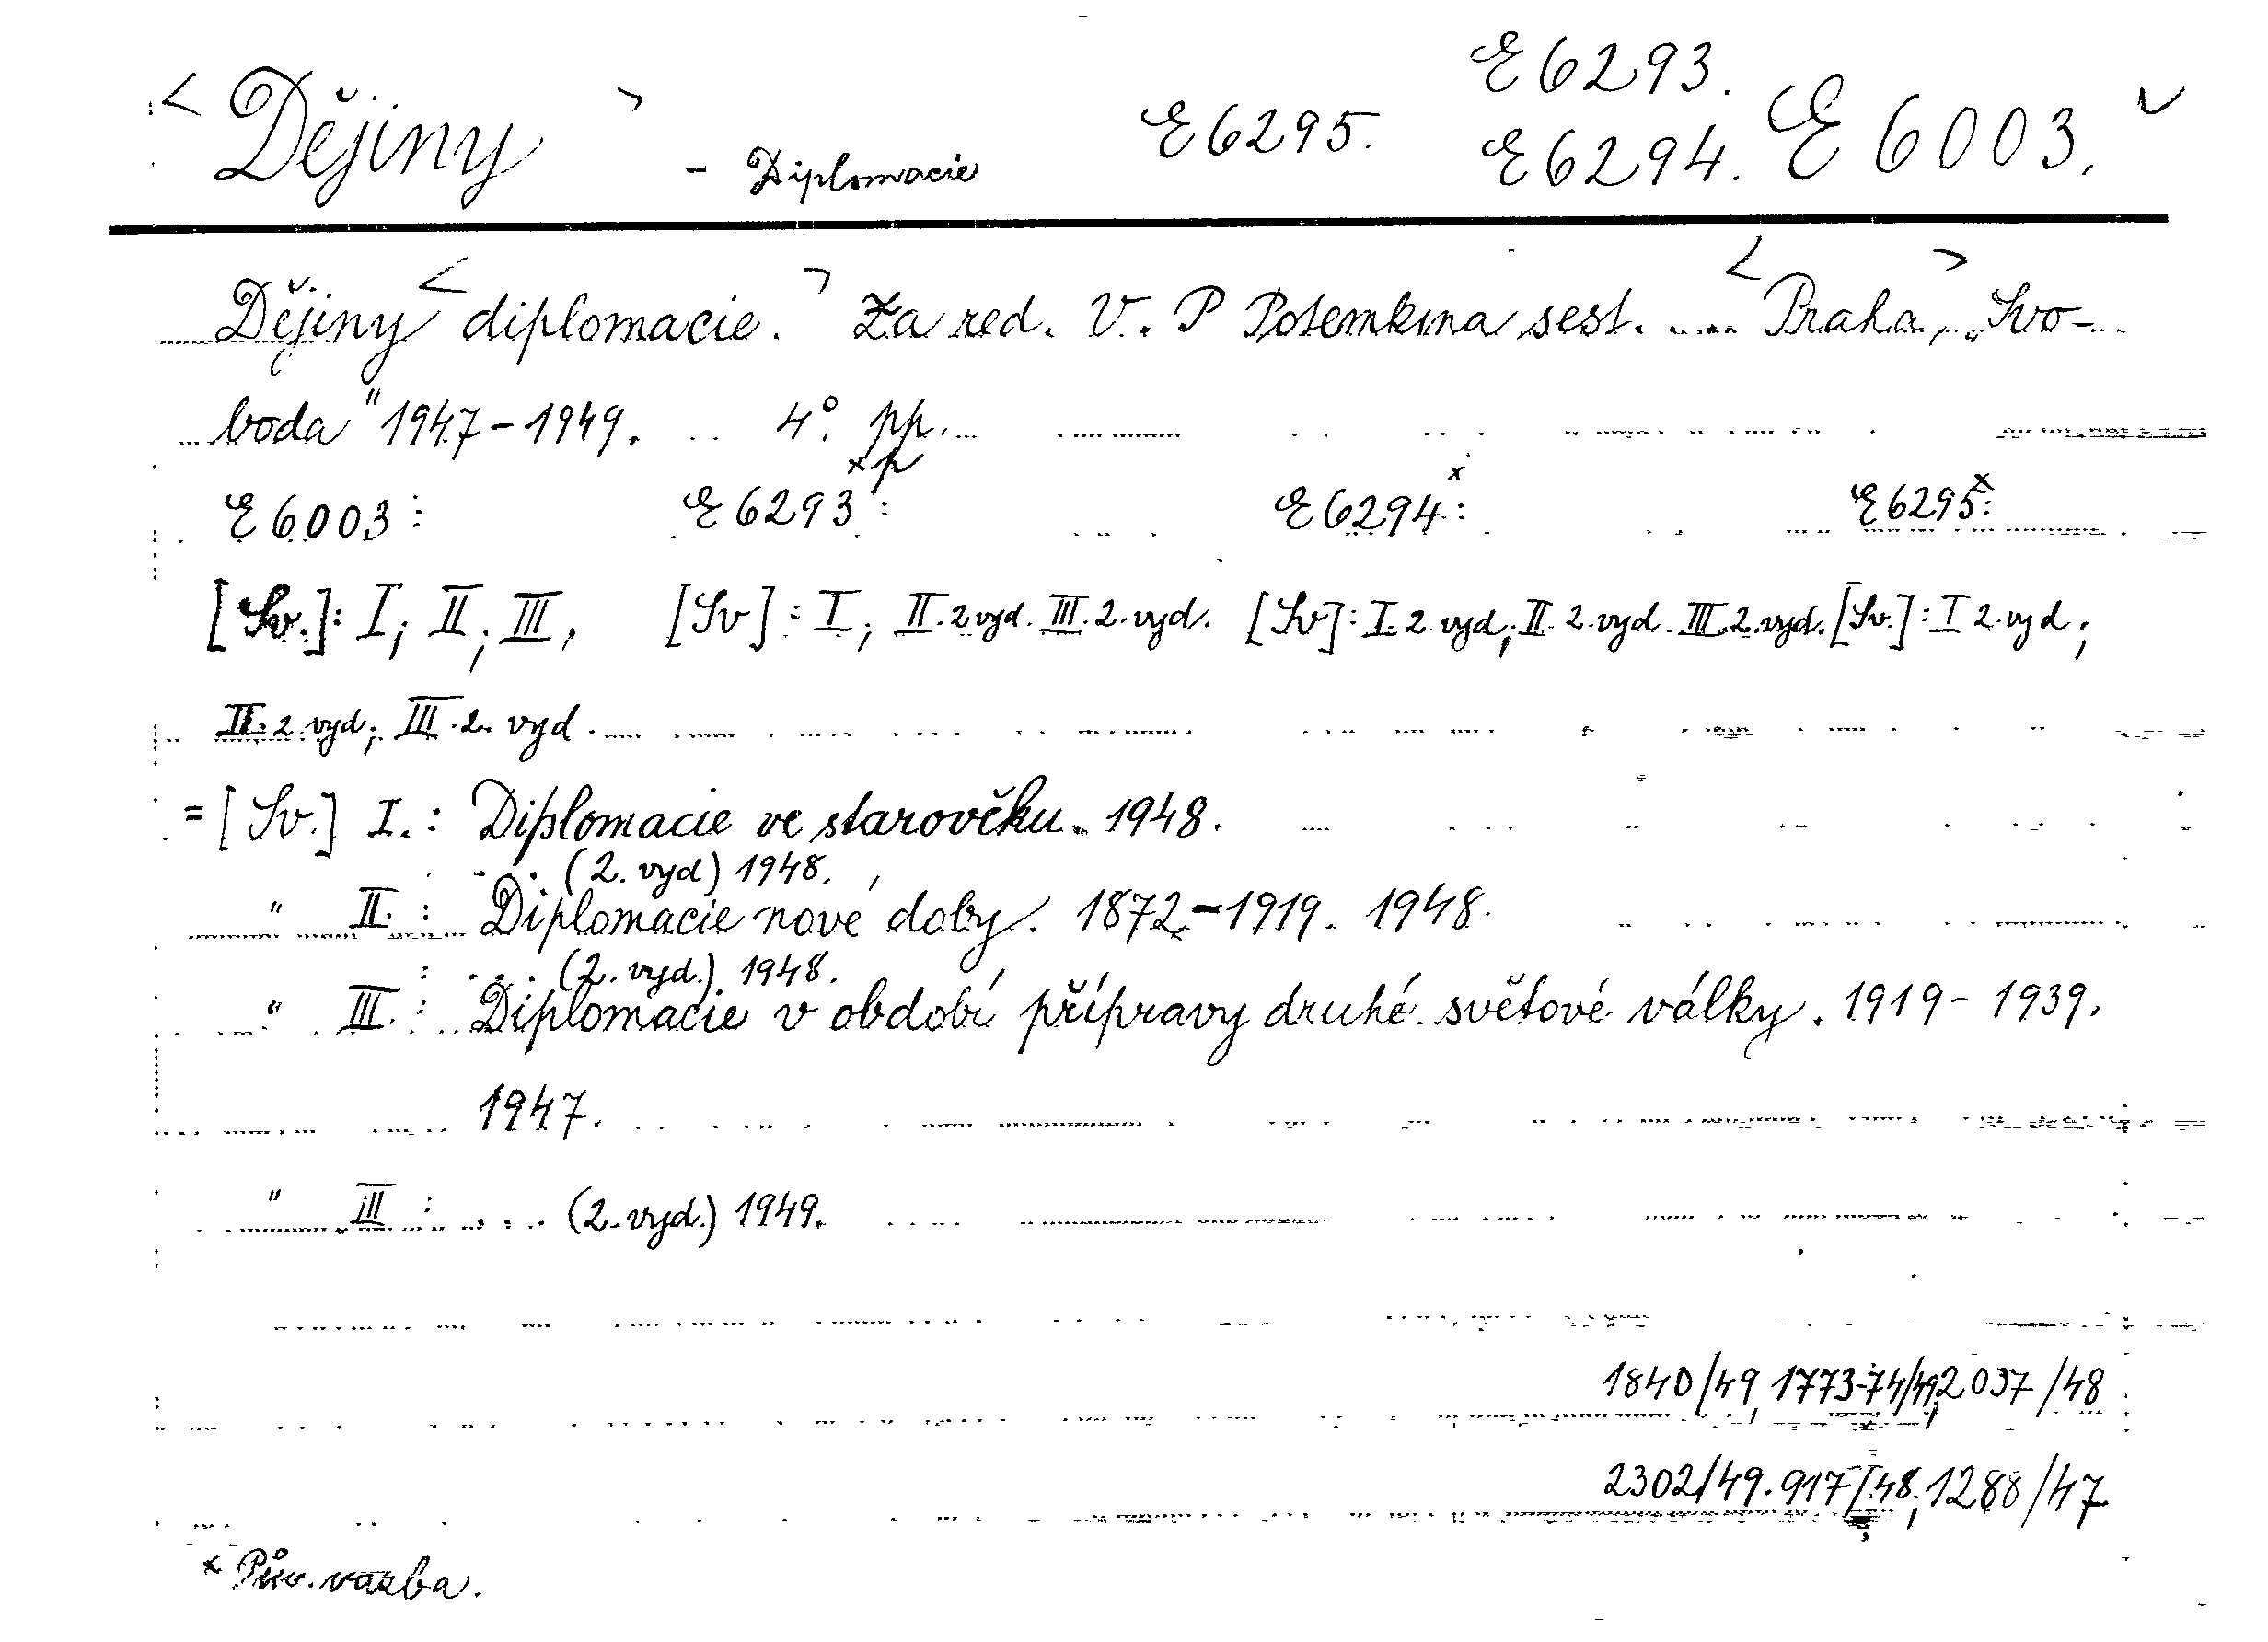 E 6293.
< Dějiny > - Diplomacie E 6295. E 6294. E 6003.
Dějiny < diplomacie. > Za red. V. P Potemkina sest. .... < Praha, > „Svo-
boda" 1947-1949. 4°. pp.
E 6003: E 6293 xp: E 6294 x: E 6295 x:
[Sv.]: I; II; III, [Sv]: I; II. 2 vyd. III. 2. vyd. [Sv]: I. 2. vyd; II. 2. vyd. III. 2. vyd. [Sv.]: I 2. vyd;
II. 2 vyd; III. 2. vyd.
= [Sv.] I.: Diplomacie ve starověku. 1948.
.... (2. vyd) 1948.
" II.: Diplomacie nové doby. 1872-1919. 1948.
: .... (2. vyd.) 1948.
" III.: Diplomacie v období přípravy druhé světové války. 1919-1939.
1947.
" III: .... (2. vyd.) 1949.
1840/49, 1773-74/49, 2037/48
2302/49. 917/48, 1288/47
x Pův. vazba.